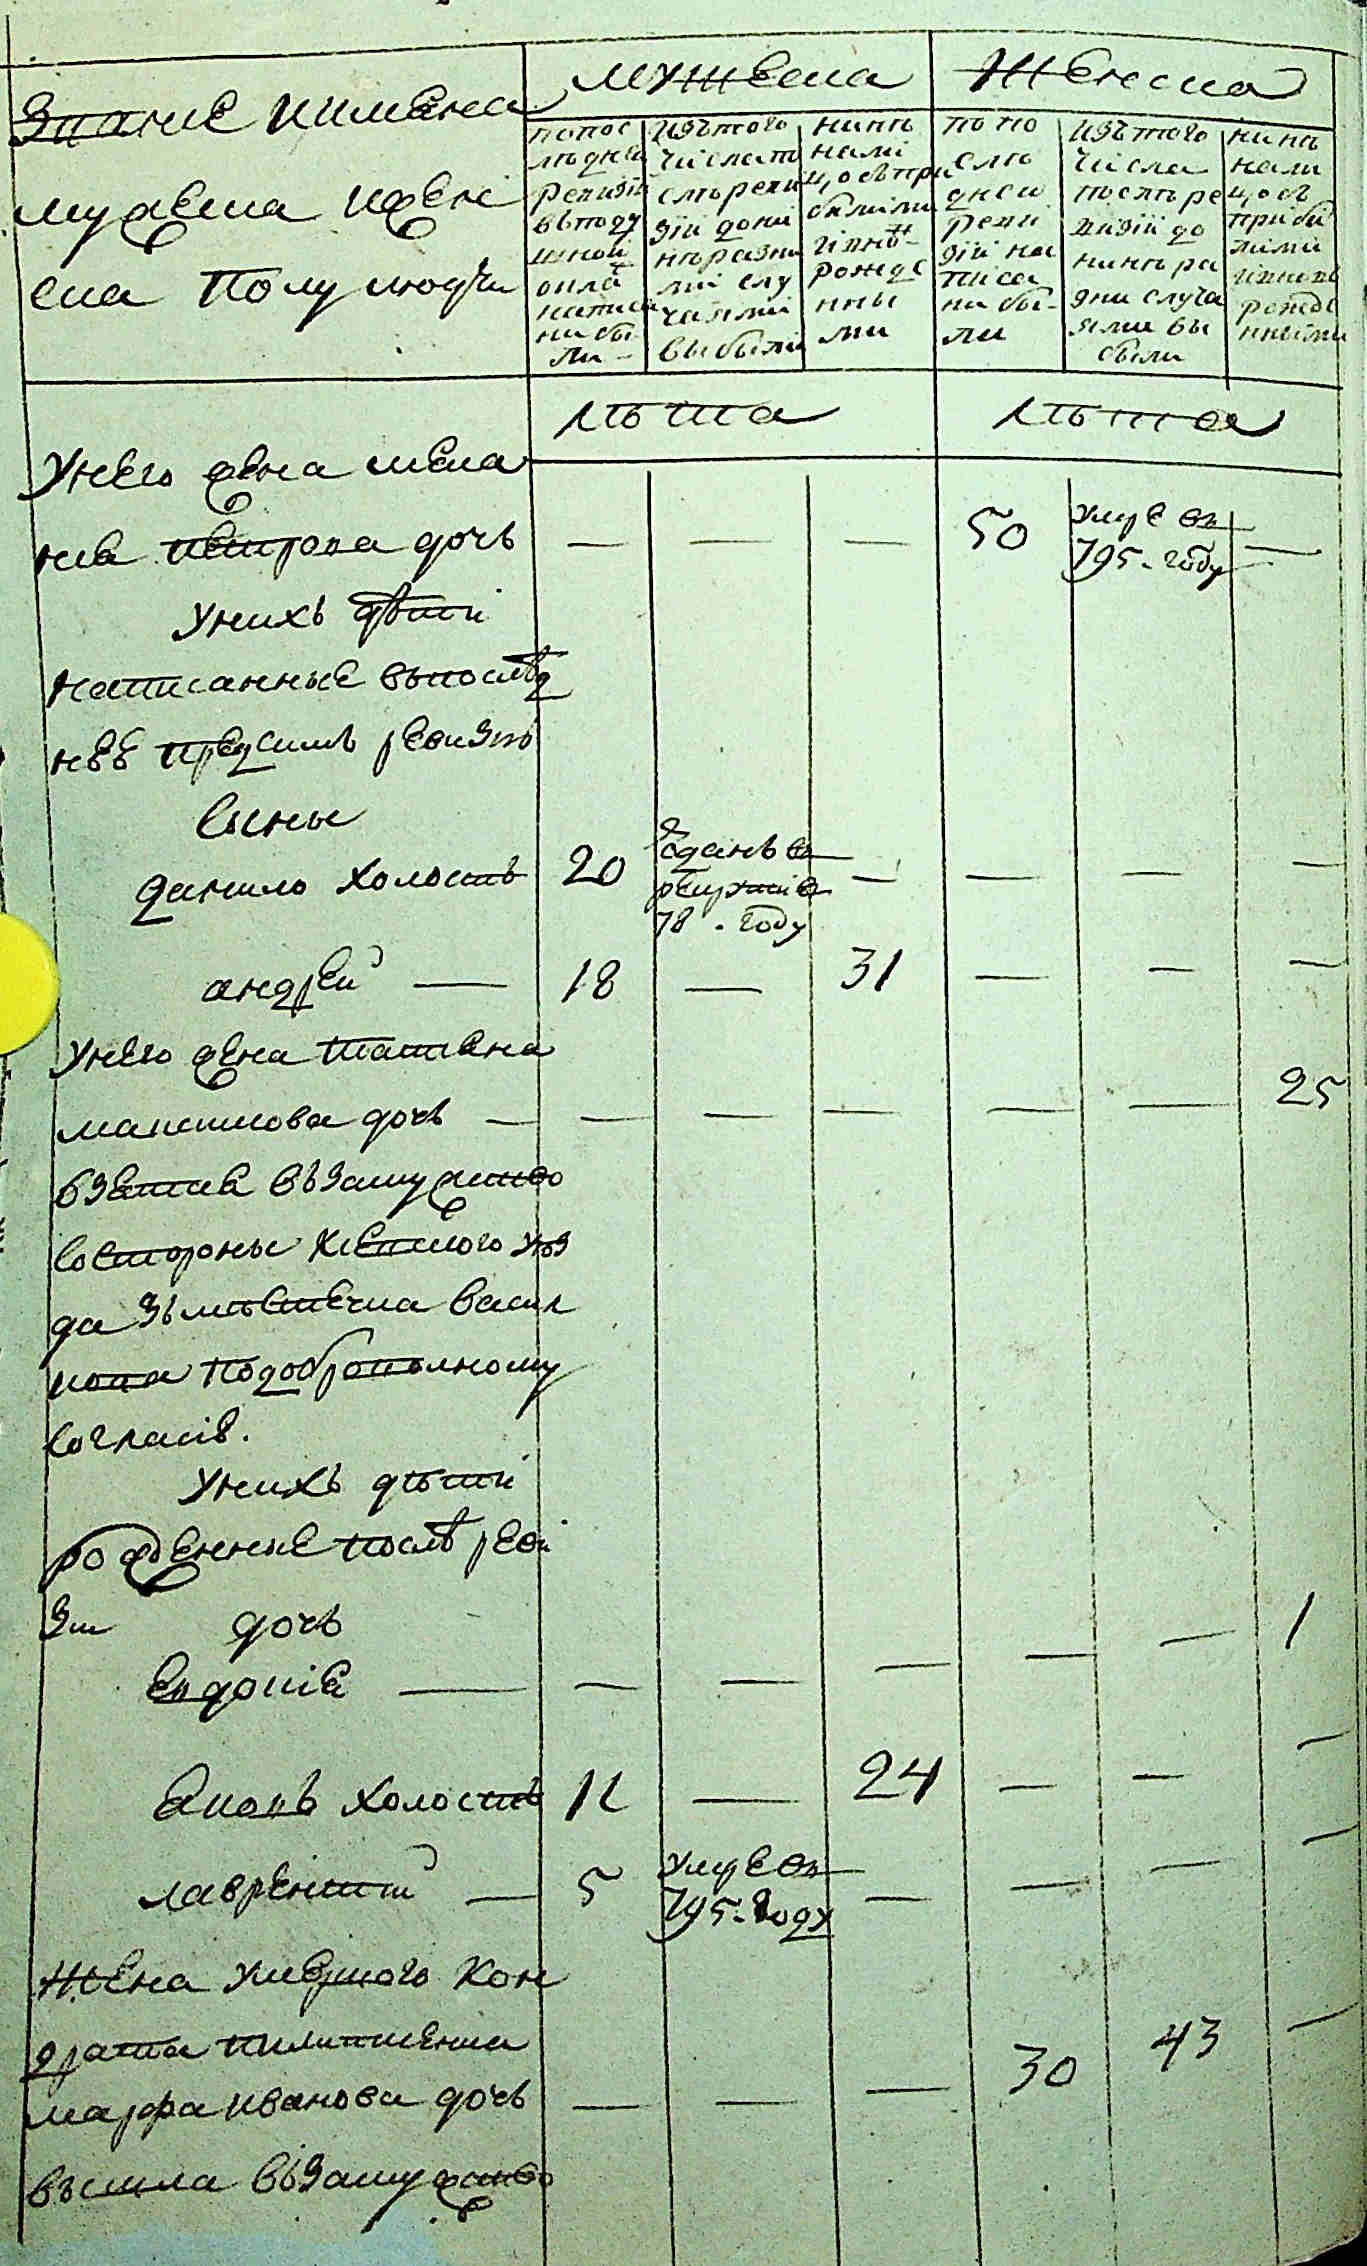 Званіе иимена
мужеска ижен
ска полу людѣи
мужеска
женска
попос
лѣдней
ревизіи
въподу
шной
окла
написа
ни бы
ли
изътого
числа п
слѣ реви
зіи дони
нѣ разны
ми слу
чаями
выбыли
нинѣ
нали
цо съ при
былыми
и вновь
рожде
нны
ми
по по
слѣ
дней
реви
зіи на
писа
ни бы
ли
изътого
числа
послѣ ре
визіи до
нинѣ ра
зни случа
ями вы
были
нинѣ
нали
цо съ
прибы
лими
и вновь
рожде
нными
лѣта
лѣта
Унего жена мела
нка петрова дочь — — — 50 умре въ 795. году —
Унихъ дѣти
написанные впослѣд
неѣ предсимъ ревизіѣ
сыны
данило холостъ 20 отданъ въ рекрути в 78 . году — — — —
андрей — 18 — 31 — — —
Унего жена татiана
максимова дочь — — — — — — 25
взятая въ замужство
состороны Кіевского уѣз
да зъ мѣстечка Васил
кова подобровольному
согласію.
Унихъ дѣти
рожденные послѣ реви
зіи дочь
Евдокія — — — — — — 1
Яковъ холостъ 11 — 24 — — —
лаврентій — 5 умре въ 795. году — — — —
Жена умершого Кон
драта пилипленка
марфа иванова дочь — — — 30 43 —
въшла въ замужство